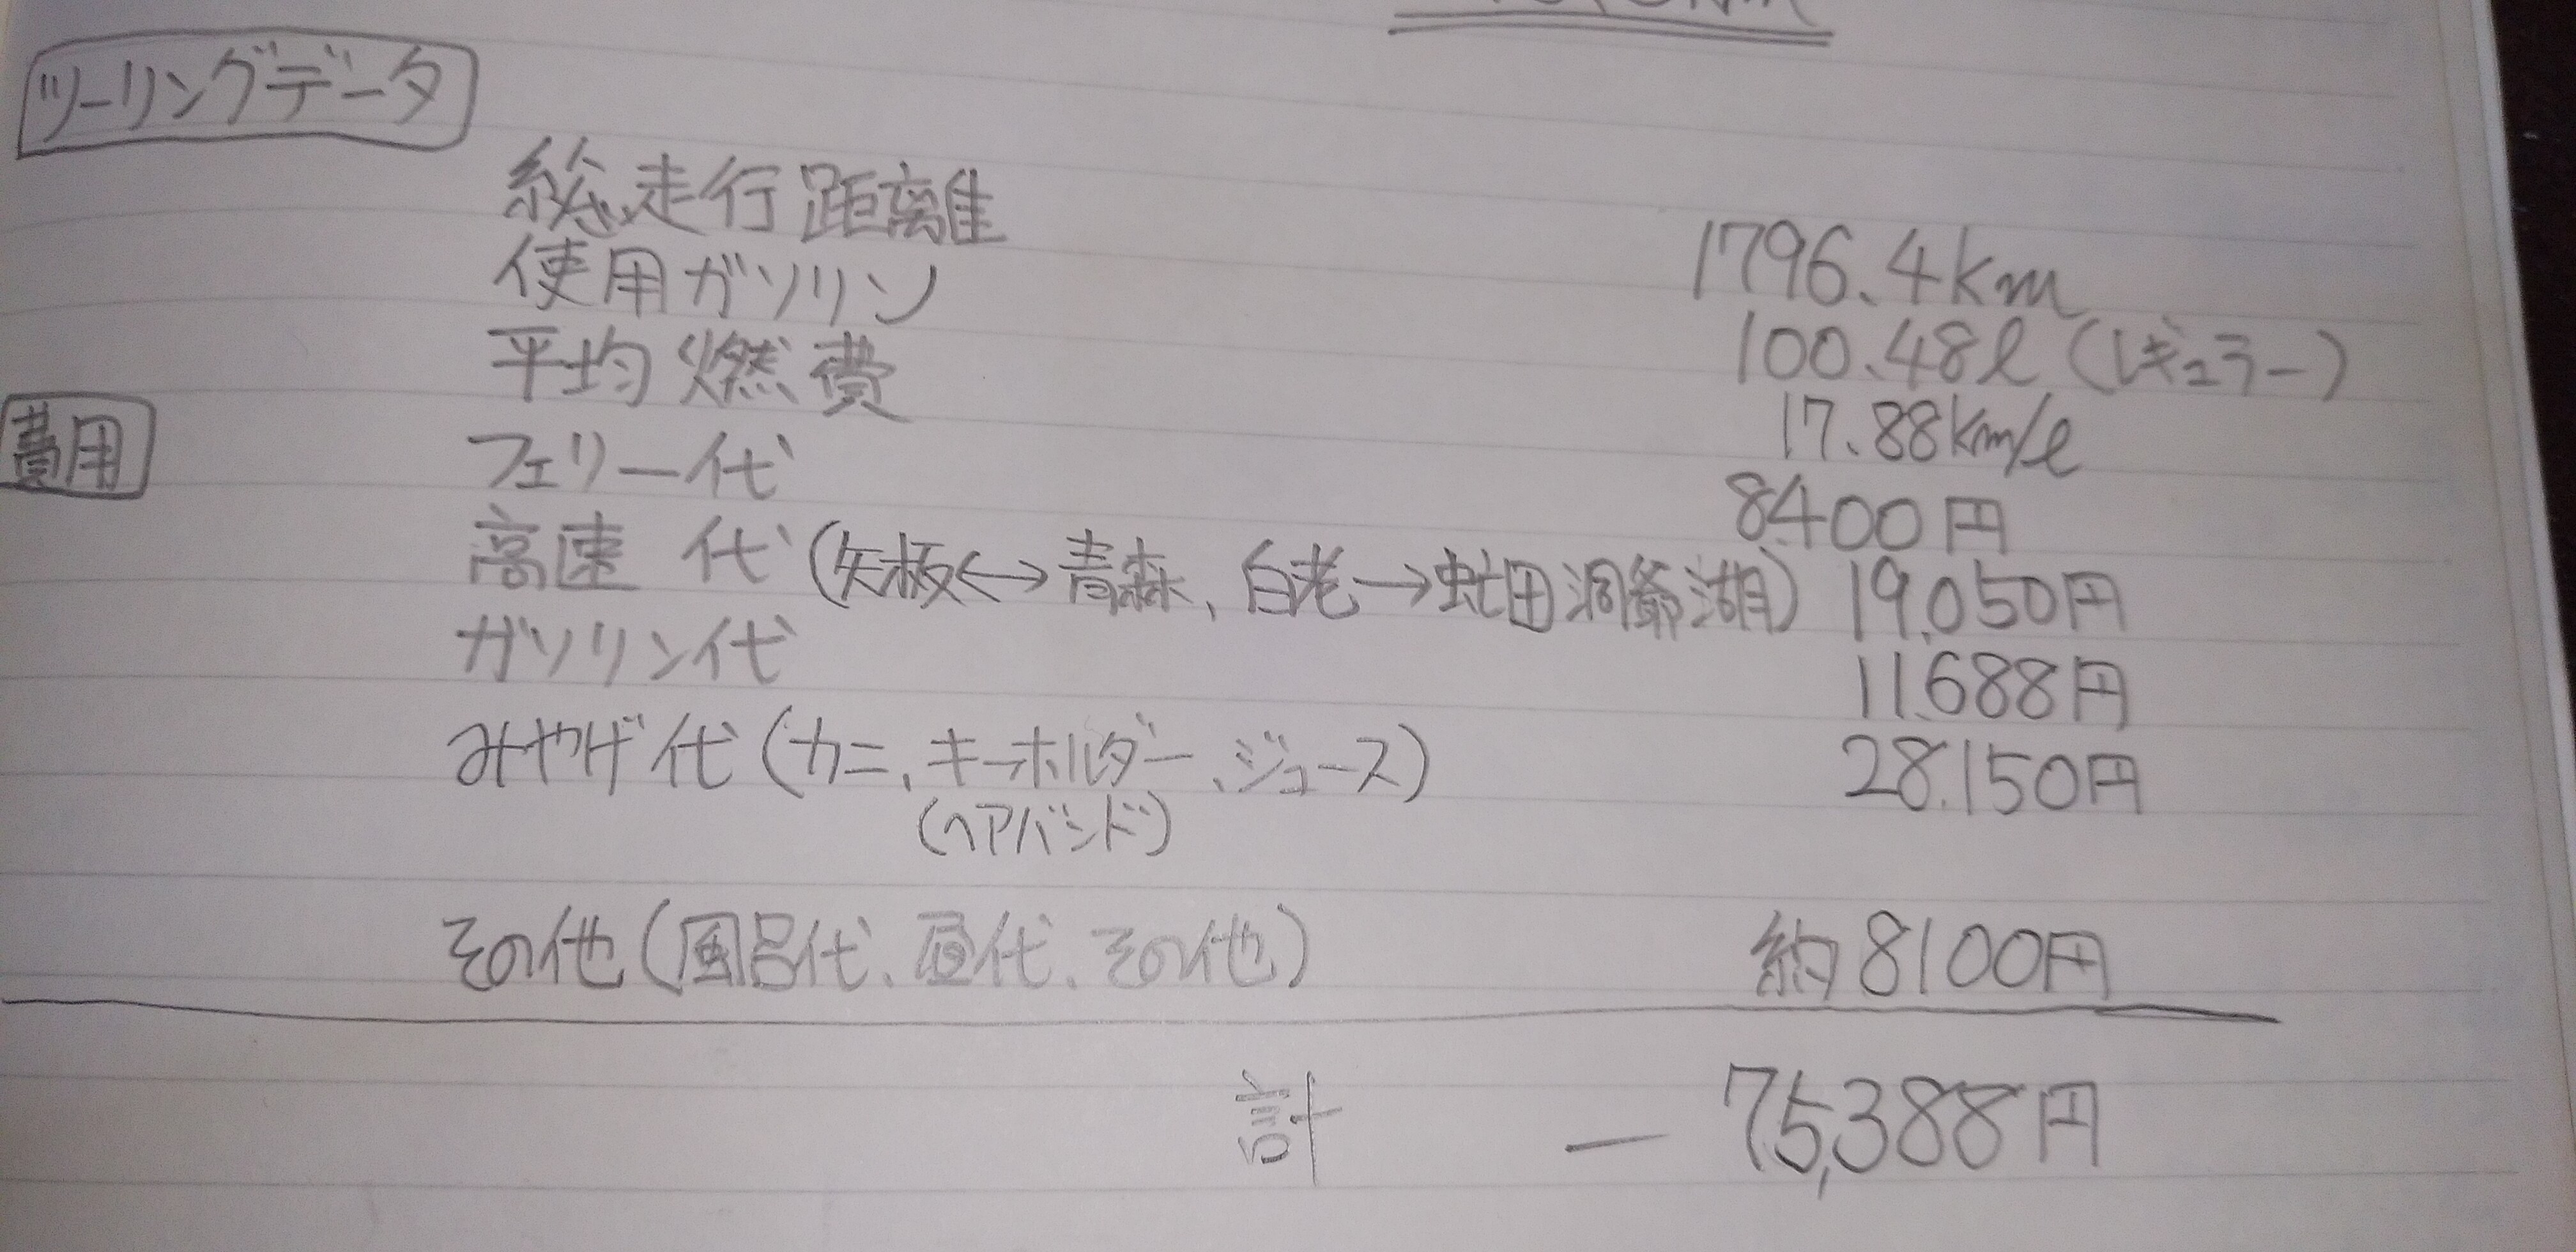 ツーリングデータ
総走行距離 1796.4km
使用ガソリン 100.48ℓ (レギュラー)
平均燃費 17.88km/ℓ
費用 フェリー代 8400円
高速代(矢板↔青森、白老→虻田洞爺湖) 19,050円
ガソリン代 11,688円
みやげ代(カニ、キーホルダー、ジュース) 28,150円
(ヘアバンド)
その他(風呂代、昼代、その他) 約8100円
計 ー 75,388円